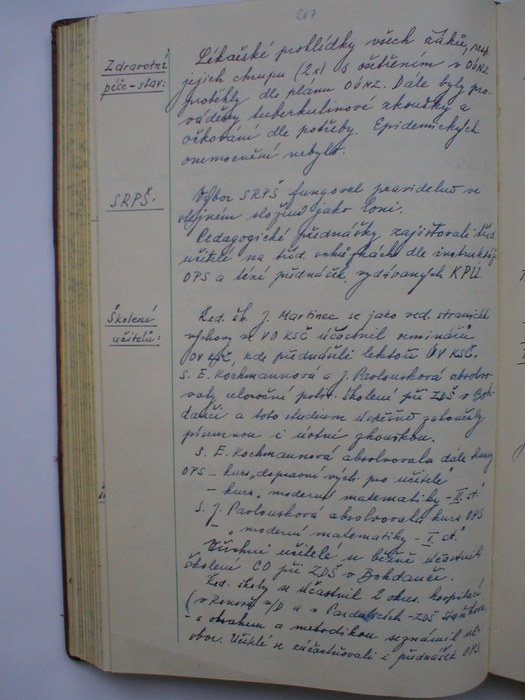 207
Zdravotní
péče - stav:
Lékařské prohlídky všech žáků,
jejich chrupu (2x) s ošetřením v OÚNZ
proběhly dle plánu OÚNZ. Dále byly pro-
váděny tuberkulinové zkoušky a
očkování dle potřeby. Epidemických
onemocnění nebylo.
SRPŠ:
Výbor SRPŠ fungoval pravidelně ve
stejném složení jako loni.
Pedagogické přednášky zajišťovali tříd.
učitelé na tříd. schůzkách dle instrukcí
OPS a tézí přednášek, vydávaných KPÚ.
Školení
učitelů:
Řed. šk. J. Martinec se jako ved. stranické
výchovy v VO KSČ účastnil seminářů
OV KSČ, kde přednášeli lektoři ÚV KSČ.
S. E. Kochmannová a J. Pavlousková absolvo-
valy celoroční polit. školení při ZDŠ v Boh-
danči a toto studium úspěšně zakončily
písemnou i ústní zkouškou.
S. E. Kochmannová absolvovala dále kursy
OPS - kurs „dopravní vých. pro učitele"
- kurs „moderní matematiky - II. st."
S. J. Pavlousková absolvovala kurs OPS
- „moderní matematiky - I. st."
Všichni učitelé se běžně účastnili
školení CO při ZDŠ v Bohdanči.
Řed. školy se účastnil 2 okres. hospitací
(v Ronově n/D a v Pardubicích - ZDŠ
- s obsahem a metodikou seznámil uč.
sbor. Učitelé se zúčastňovali i přednášek OPS